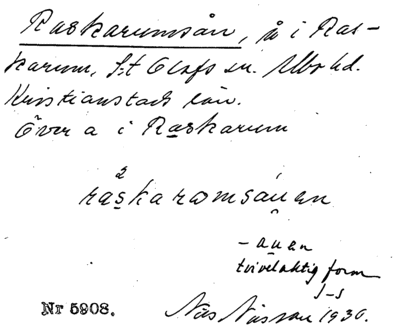 Raskarumsån, å i Ras-
karum, S:t Olofs sn. Albo hd.
Kristianstads län.
Över a i Raskarum
2
raskaromsáuan
- auan
tvivelaktig form
J-s
Nr 5908. Nils Nilsson 1930.